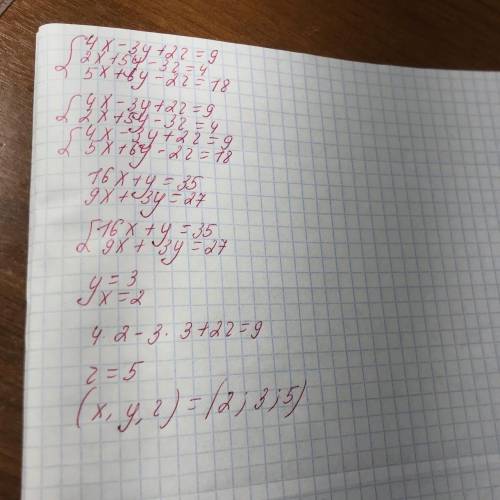 4x-3y+2z=9
2x+5y-3z=4
5x+6y-2z=18
4x-3y+2z=9
2x+5y-3z=4
4x-3y+2z=9
5x+6y-2z=18
16x+y=35
9x+3y=27
16x+y=35
9x+3y=27
y=3
x=2
4·2-3·3+2z=9
z=5
(x,y,z)=(2;3;5)